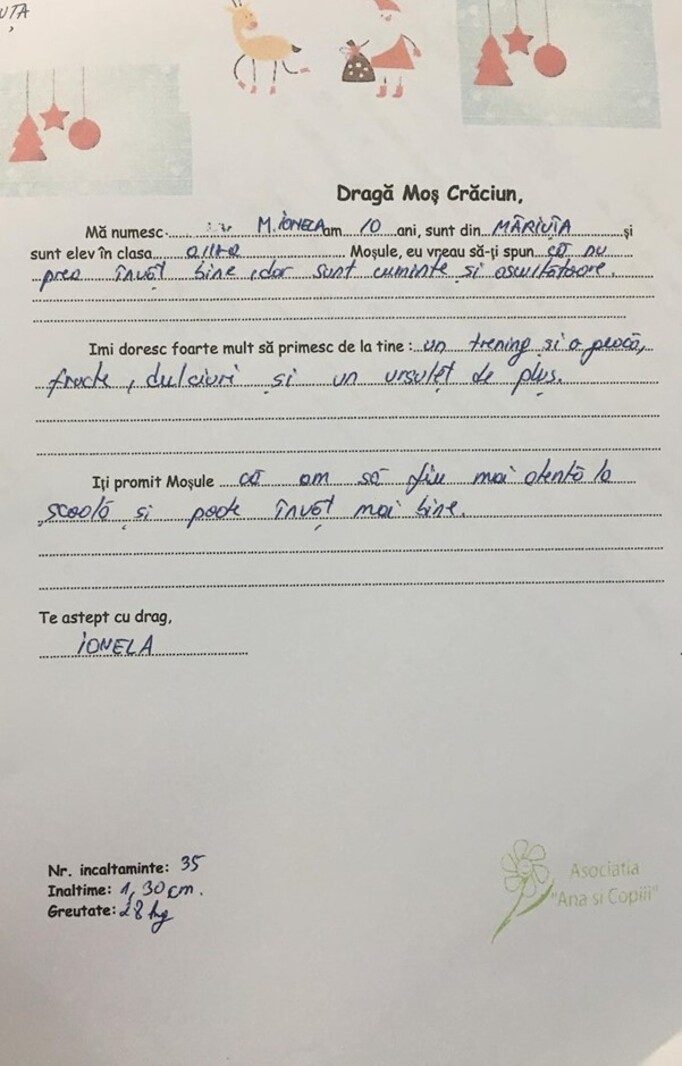 UȚA
Dragă Moș Crăciun,
Mă numesc M. IONELA am 10 ani, sunt din MĂRIUȚA și
sunt elev în clasa a III-a Moșule, eu vreau să-ți spun că nu
prea învăț bine, dar sunt cuminte și ascultătoare.
Imi doresc foarte mult să primesc de la tine : un trening și o geacă,
fructe, dulciuri și un ursuleț de pluș.
Iți promit Moșule că am să fiu mai atentă la
școală și poate învăț mai bine.
Te astept cu drag,
IONELA
Nr. incaltaminte: 35
Inaltime: 1,30 cm.
Greutate: 28 kg
Asociatia
"Ana si Copiii"